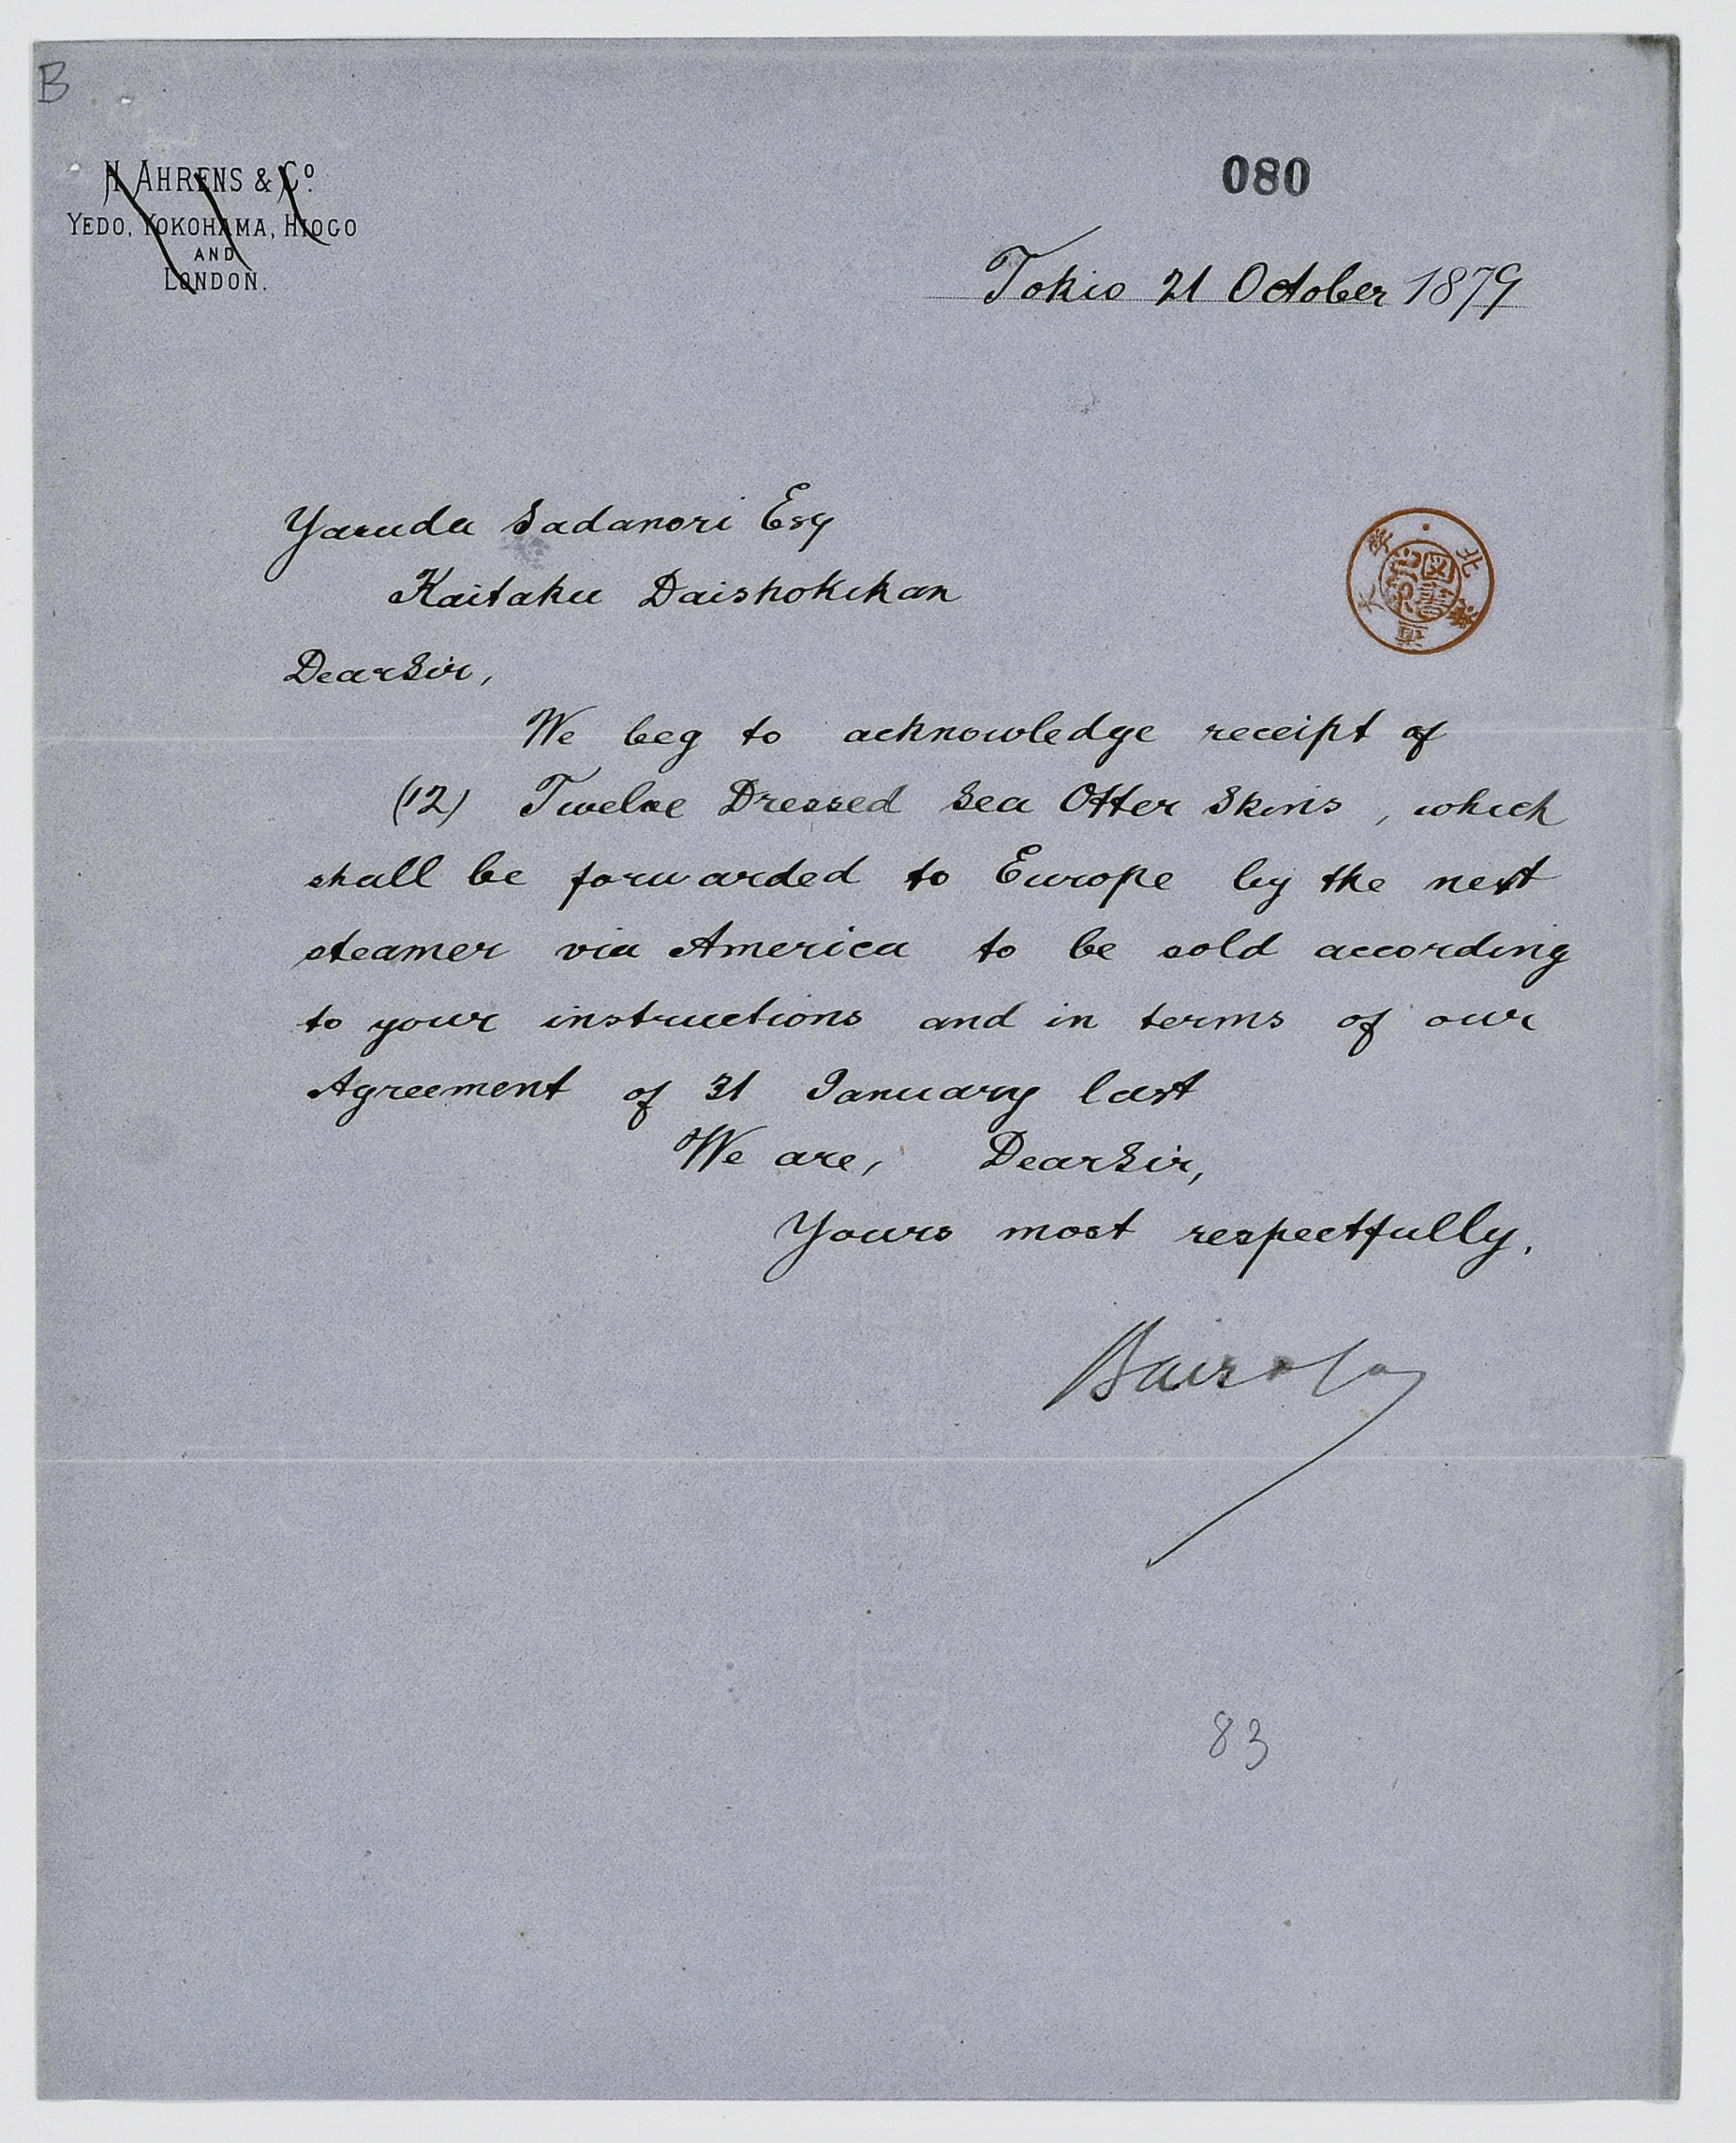 B
H. AHRENS & Co.
YEDO, YOKOHAMA, HIOGO
AND
LONDON.
080
Tokio 21 October 1879
Yasuda Sadanori Esq
Kaitaku Daishokikan
Dear Sir,
We beg to acknowledge receipt of
(12) Twelve Dressed Sea Otter Skins, which
shall be forwarded to Europe by the next
steamer via America to be sold according
to your instructions and in terms of our
Agreement of 31 January last
We are, Dear Sir,
Yours most respectfully.
83